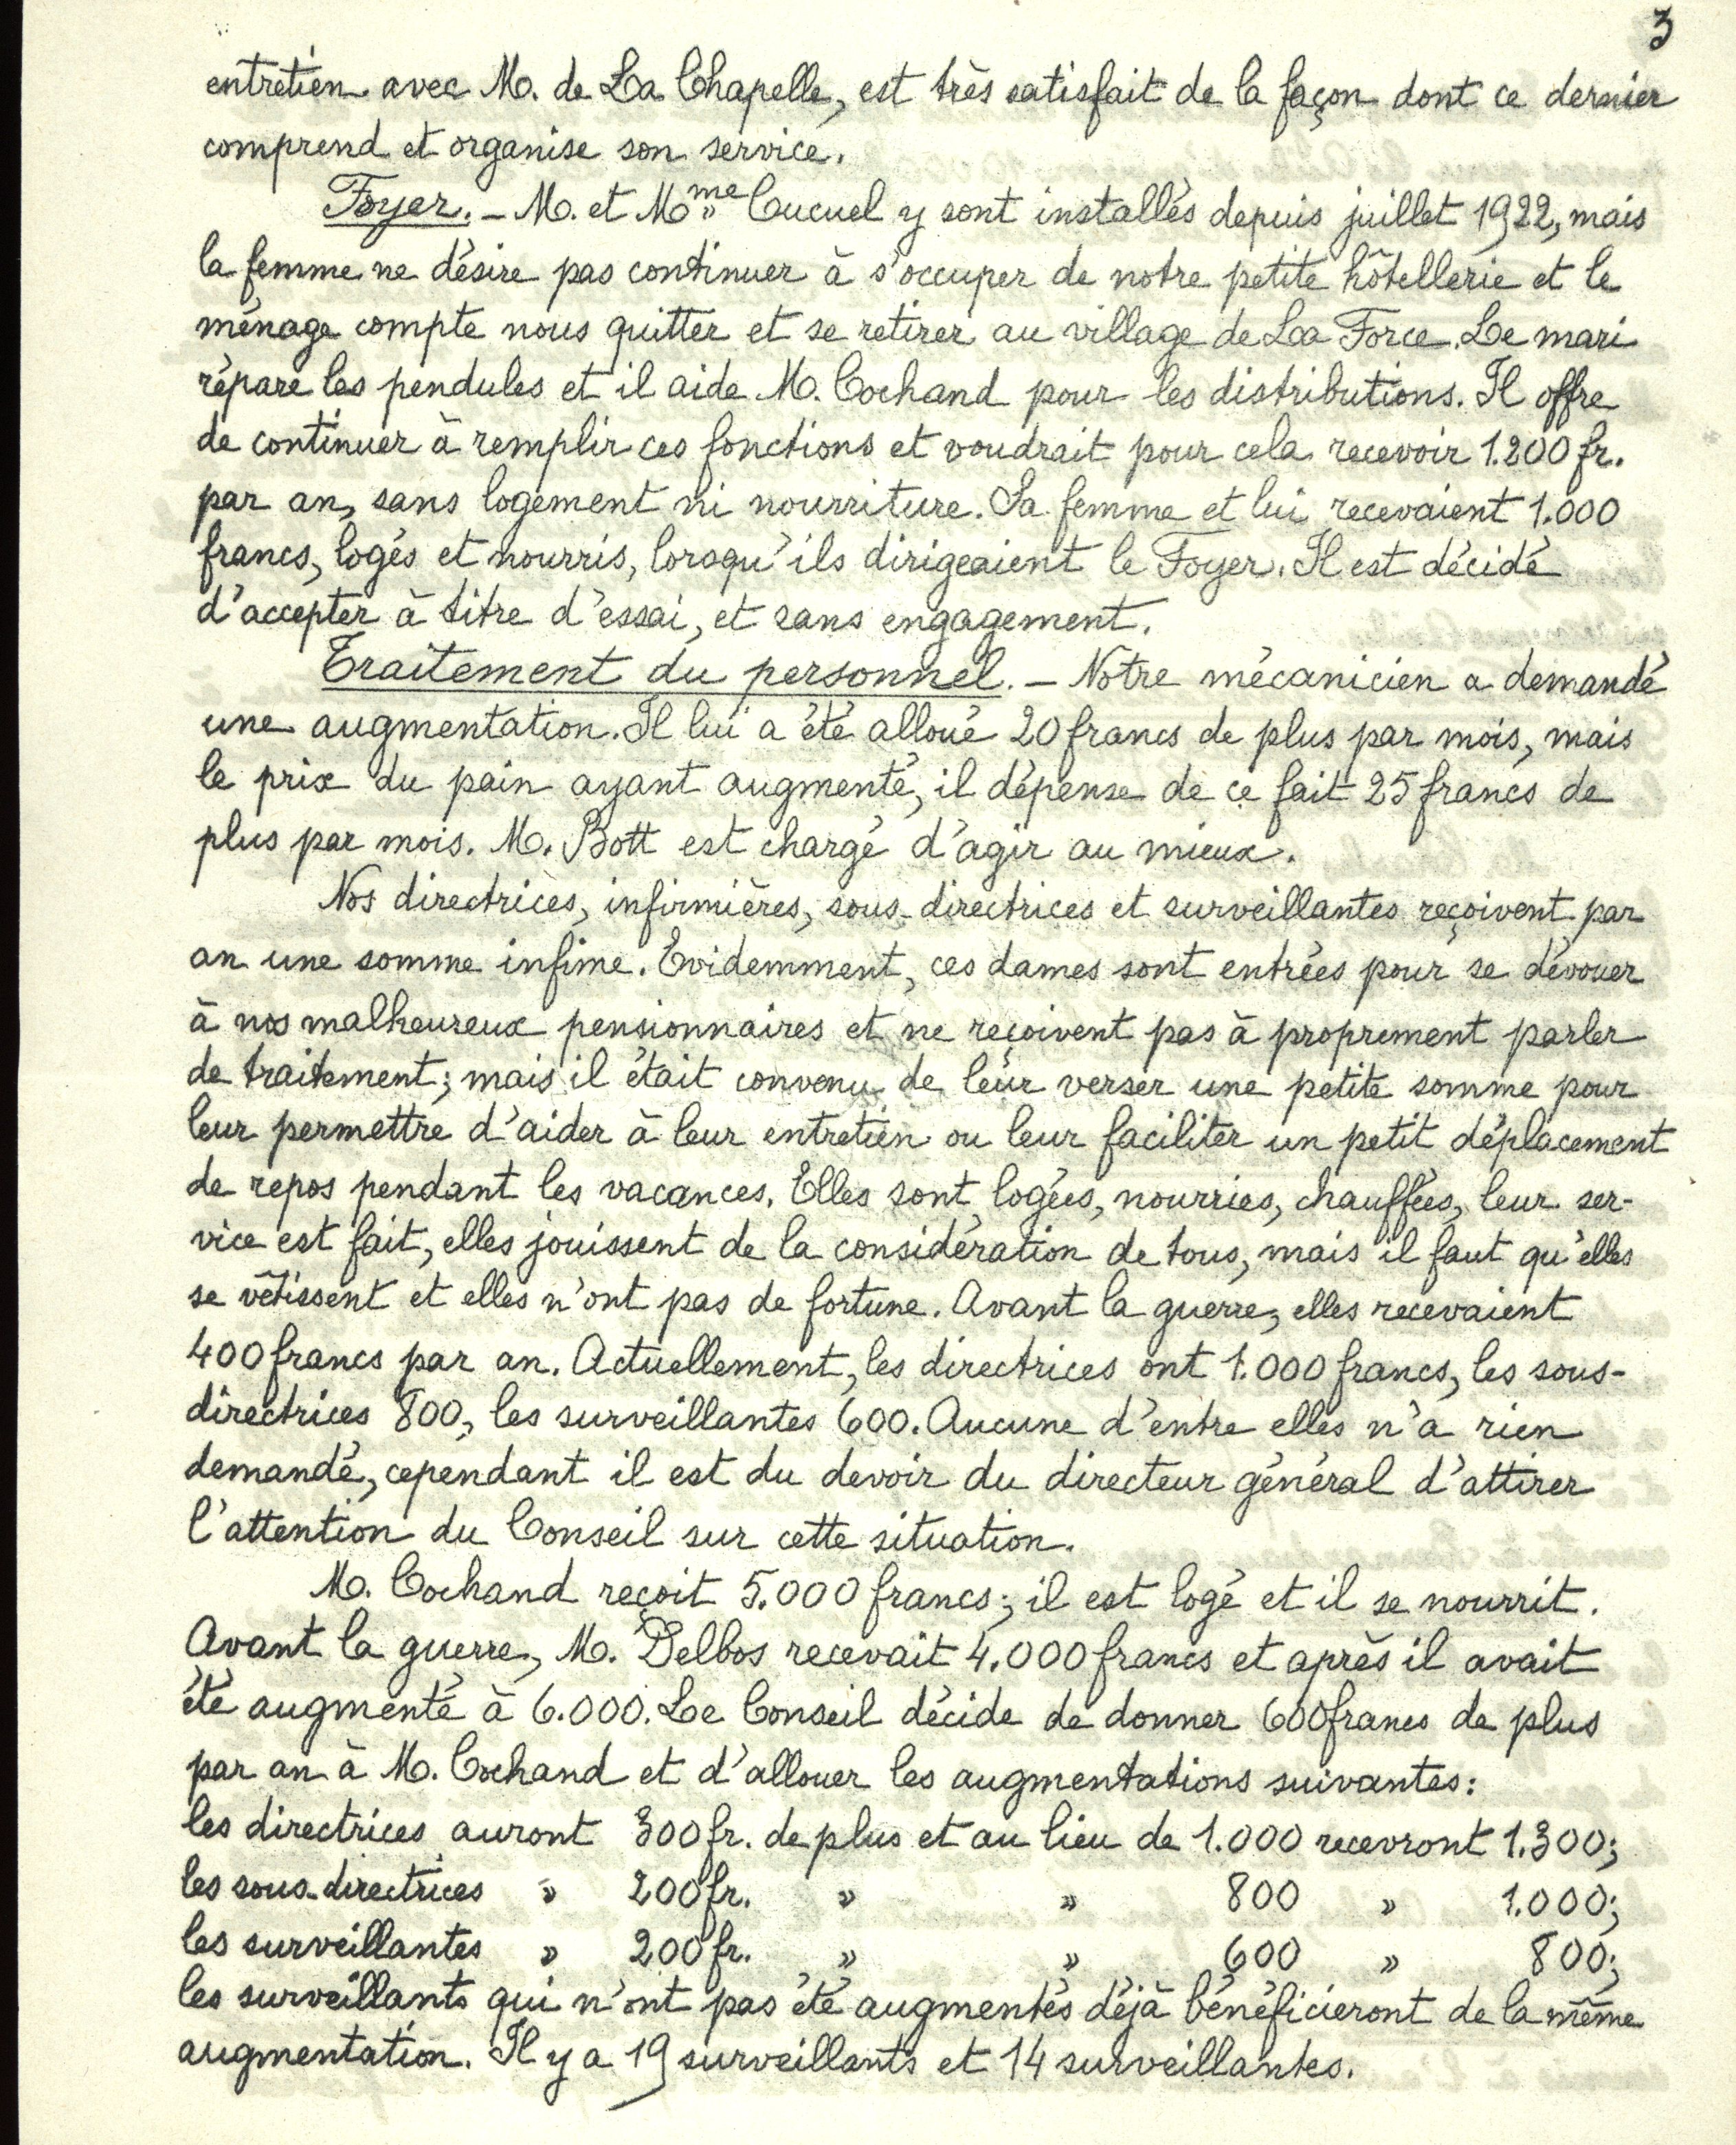 3
entretien avec M. de La Chapelle, est très satisfait de la façon dont ce dernier
comprend et organise son service.
Foyer. – M. et Mme Cucuel y sont installés depuis juillet 1922, mais
la femme ne désire pas continuer à s'occuper de notre petite hôtellerie et le
ménage compte nous quitter et se retirer au village de La Force. Le mari
répare les pendules et il aide M. Cochand pour les distributions. Il offre
de continuer à remplir ces fonctions et voudrait pour cela recevoir 1.200 fr.
par an, sans logement ni nourriture. Sa femme et lui recevaient 1.000
francs, logés et nourris, lorsqu'ils dirigeaient le Foyer. Il est décidé
d'accepter à titre d'essai, et sans engagement.
Traitement du personnel. – Notre mécanicien a demandé
une augmentation. Il lui a été alloué 20 francs de plus par mois, mais
le prix du pain ayant augmenté, il dépense de ce fait 25 francs de
plus par mois. M. Bott est chargé d'agir au mieux.
Nos directrices, infirmières, sous-directrices et surveillantes reçoivent par
an une somme infime. Evidemment, ces dames sont entrées pour se dévouer
à nos malheureux pensionnaires et ne reçoivent pas à proprement parler
de traitement; mais il était convenu de leur verser une petite somme pour
leur permettre d'aider à leur entretien ou leur faciliter un petit déplacement
de repos pendant les vacances. Elles sont logées, nourries, chauffées, leur ser-
vice est fait, elles jouissent de la considération de tous, mais il faut qu'elles
se vêtissent et elles n'ont pas de fortune. Avant la guerre, elles recevaient
400 francs par an. Actuellement, les directrices ont 1.000 francs, les sous-
directrices 800, les surveillantes 600. Aucune d'entre elles n'a rien
demandé, cependant il est du devoir du directeur général d'attirer
l'attention du Conseil sur cette situation.
M. Cochand reçoit 5.000 francs; il est logé et il se nourrit.
Avant la guerre, M. Delbos recevait 4.000 francs et après il avait
été augmenté à 6.000. Le Conseil décide de donner 600 francs de plus
par an à M. Cochand et d'allouer les augmentations suivantes:
les directrices auront 300 fr. de plus et au lieu de 1.000 recevront 1.300;
les sous-directrices » 200 fr. » » 800 » 1.000;
les surveillantes » 200 fr. » » 600 » 800;
les surveillants qui n'ont pas été augmentés déjà bénéficieront de la même
augmentation. Il y a 19 surveillants et 14 surveillantes.